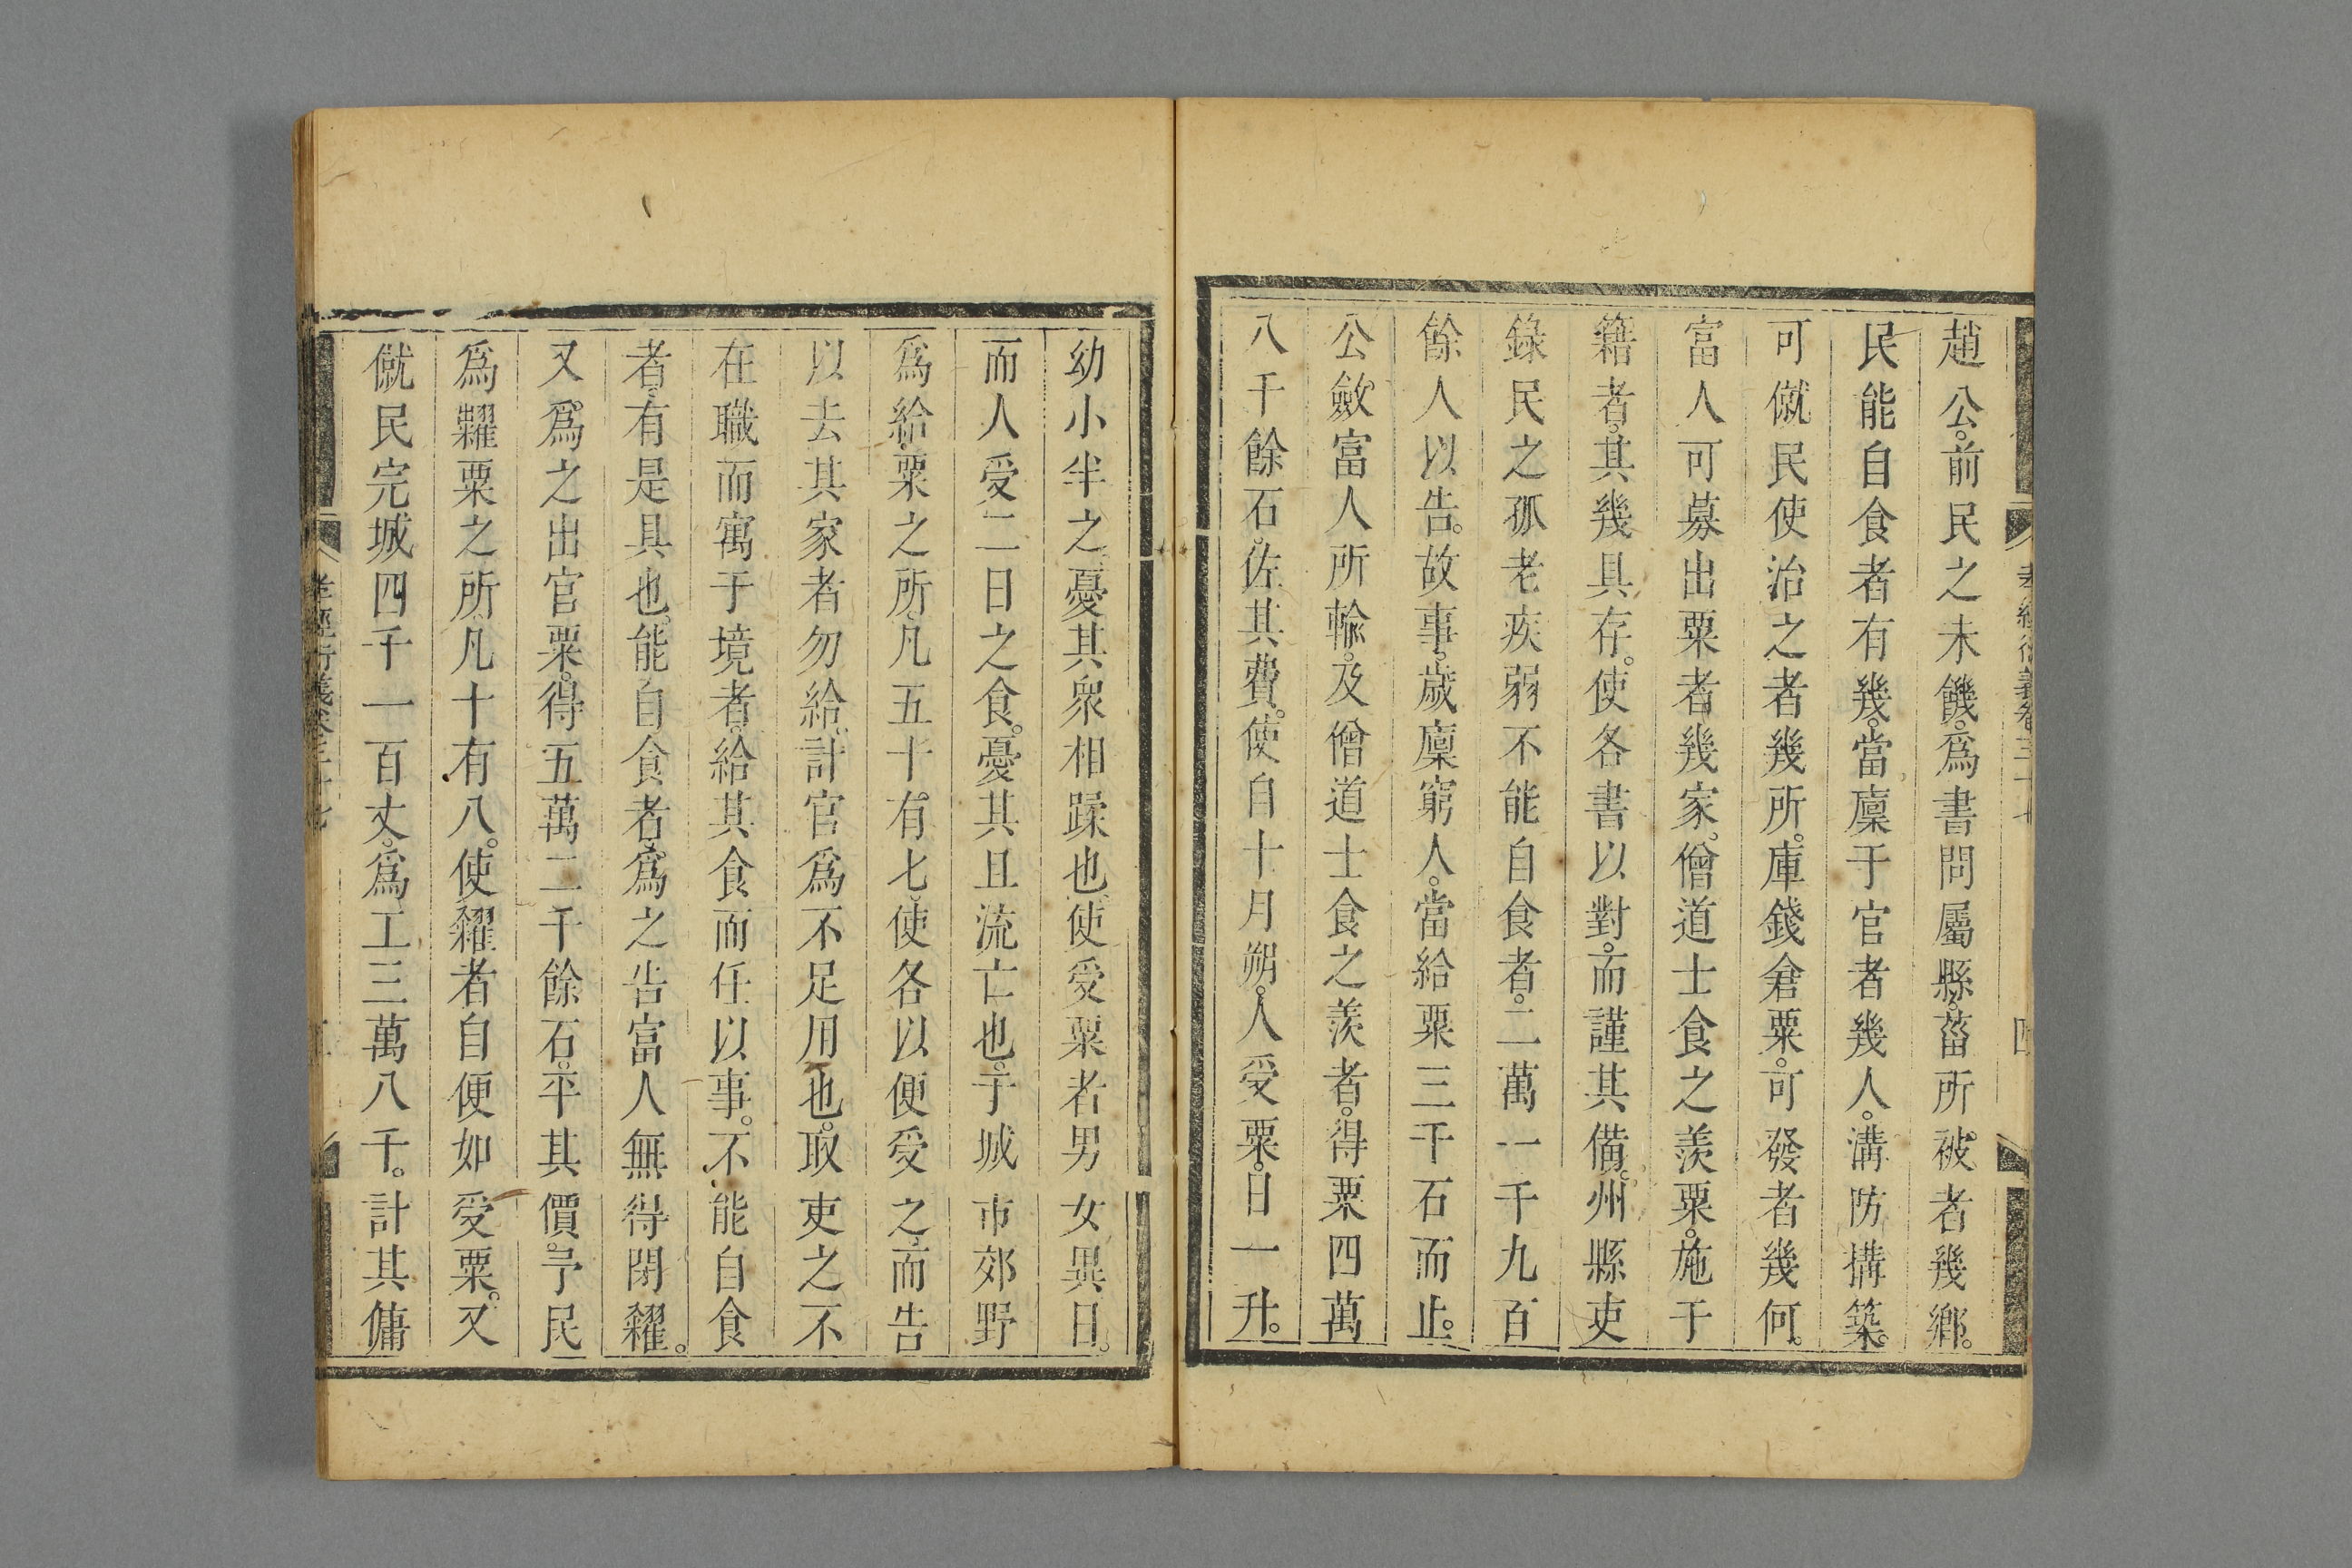 趙公。前民之未饑。爲書問屬縣。菑所被者幾鄉。
民能自食者有幾。當廩于官者幾人。溝防搆築。
可僦民使治之者幾所。庫錢倉粟。可發者幾何。
富人可募出粟者幾家。僧道士食之羨粟。施于
籍者。其幾具存。使各書以對。而謹其備。州縣吏
錄民之孤老疾弱不能自食者。二萬一千九百
餘人以告。故事。歲廩窮人。當給粟三千石而止。
公斂富人所輸。及僧道士食之羨者。得粟四萬
八千餘石。佐其費。使自十月朔。人受粟。日一升。
幼小半之。憂其衆相蹂也。使受粟者男女異日。
而人受二日之食。憂其且流亡也。于城市郊野
爲給粟之所。凡五十有七。使各以便受之。而告
以去其家者勿給。計官爲不足用也。取吏之不
在職而寓于境者。給其食而任以事。不能自食
者。有是具也。能自食者。爲之告富人無得閉糴。
又爲之出官粟。得五萬二千餘石。平其價。予民
爲糶粟之所。凡十有八。使糴者自便如受粟。又
僦民完城四千一百丈。爲工三萬八千。計其傭
孝經衍義卷三十七